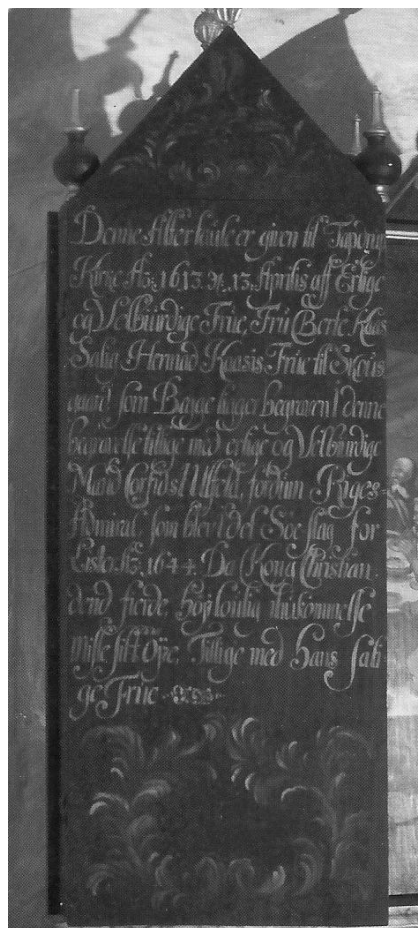 Denne Alter taule er given til Taponø
Kirke Aō: 1613. 9. 13. Aprilis aff Erlige
og Velbiurdige Frue, Fru Berte Kaas
Salig Hermād Kaasis Frue til Skous
gaard som Begge liger begraven I denne
begravelse tillige med erlige og Velbiurdige
Mand Corfids Ulfeld, fordum Riges
Admiral, som blev I det Söe slag for
1644. Da Kong Christian
dend fierde höylovlig ihukommelse
miste sitt Öye, Tillige med Hans sali
ge Frue